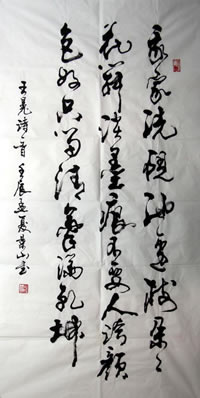 我家洗硯池邊樹朵々
花開淡墨痕不要人誇顏
色好只留清氣滿乾坤
王冕詩一首 壬辰孟夏景山書